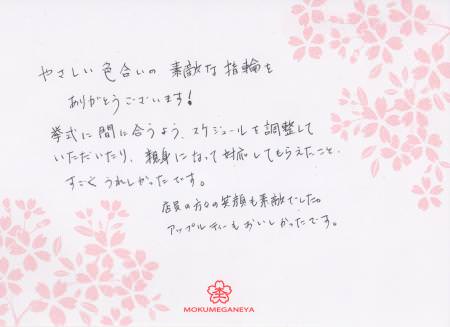 やさしい色合いの素敵な指輪を
ありがとうございます!
挙式に間に合うよう、スケジュールを調整して
いただいたり、親身になって対応してもらえたこと、
すごくうれしかったです。
店員の方々の笑顔も素敵でした。
アップルティーもおいしかったです。
MOKUMEGANEYA